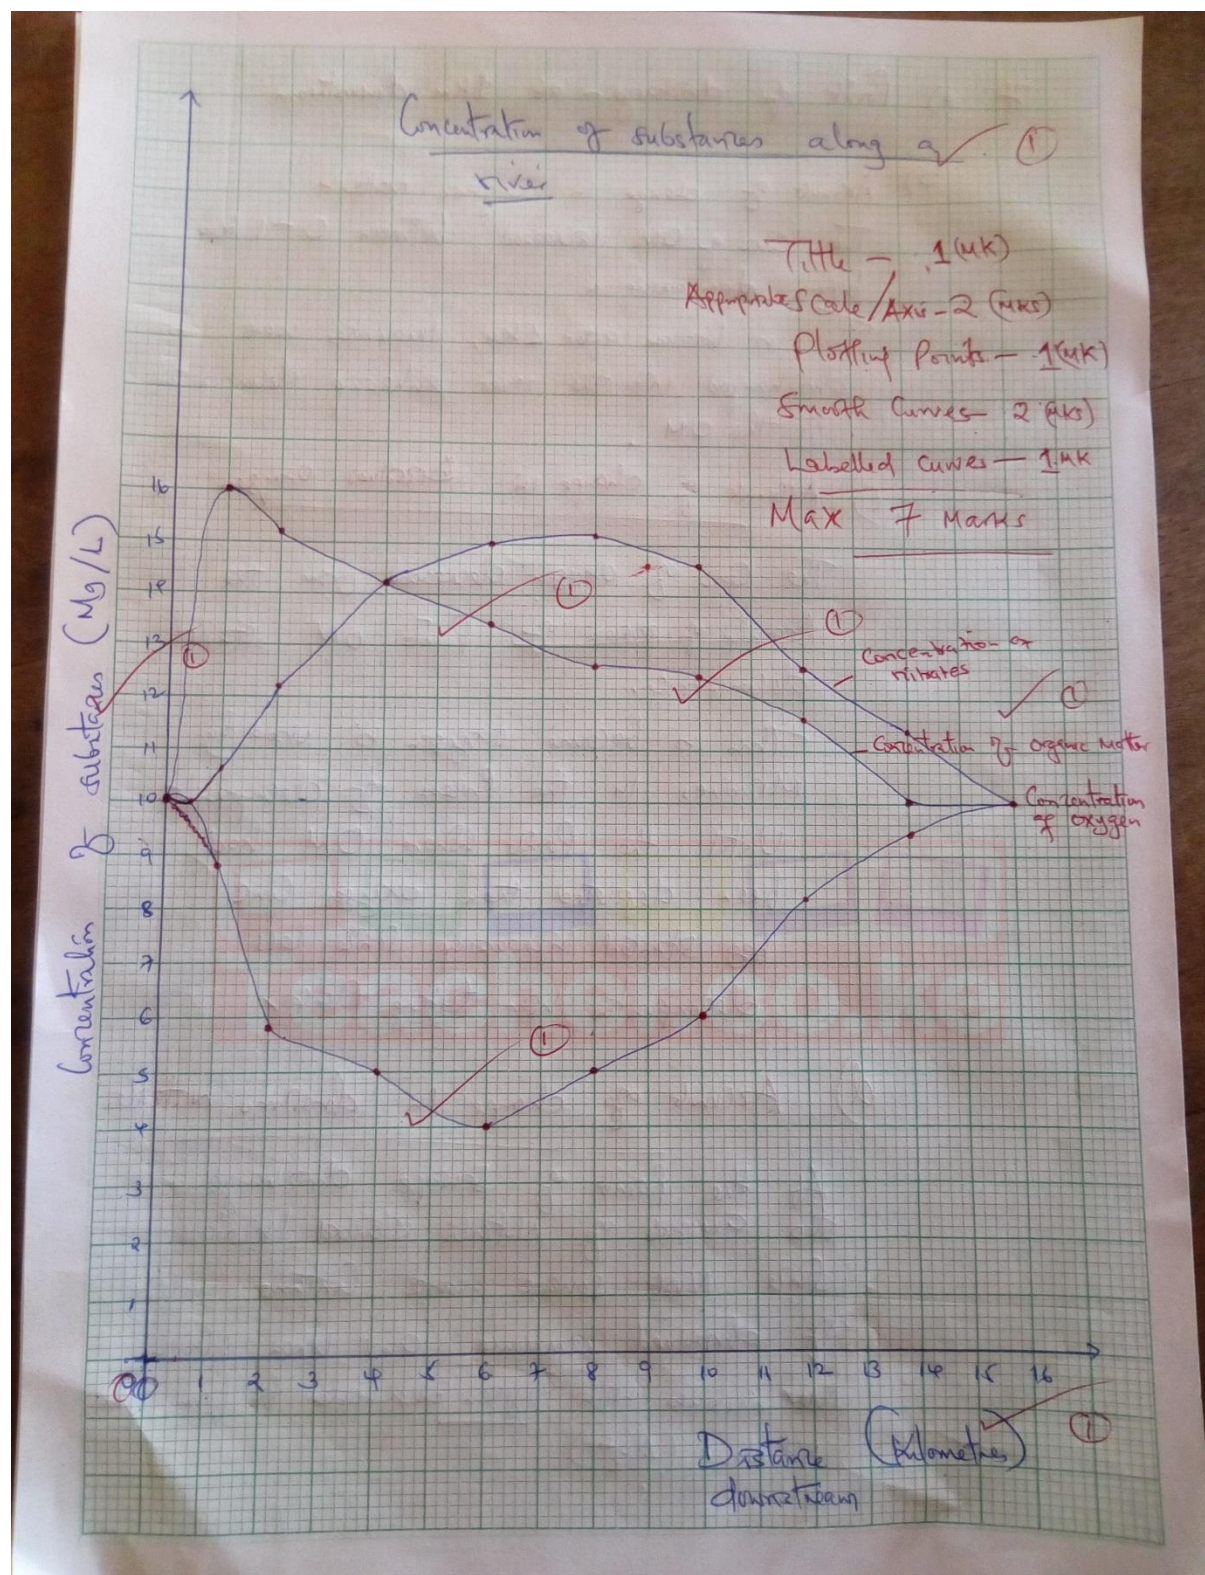 Concentration of substances along a
river
1
Tittle - 1 (MK)
Appropriate Scale/Axis - 2 (MKS)
Plotting Points - 1 (MK)
Smooth Curves - 2 (MKS)
Labelled curves - 1 MK
Max 7 Marks
Concentration of substances (Mg/L)
16
15
14
13
12
11
10
9
8
7
6
5
4
3
2
1
0
1
1
1
Concentration of
nitrates
1
Concentration of organic matter
Concentration
of oxygen
1
1 2 3 4 5 6 7 8 9 10 11 12 13 14 15 16
1
Distance (Kilometres)
downstream